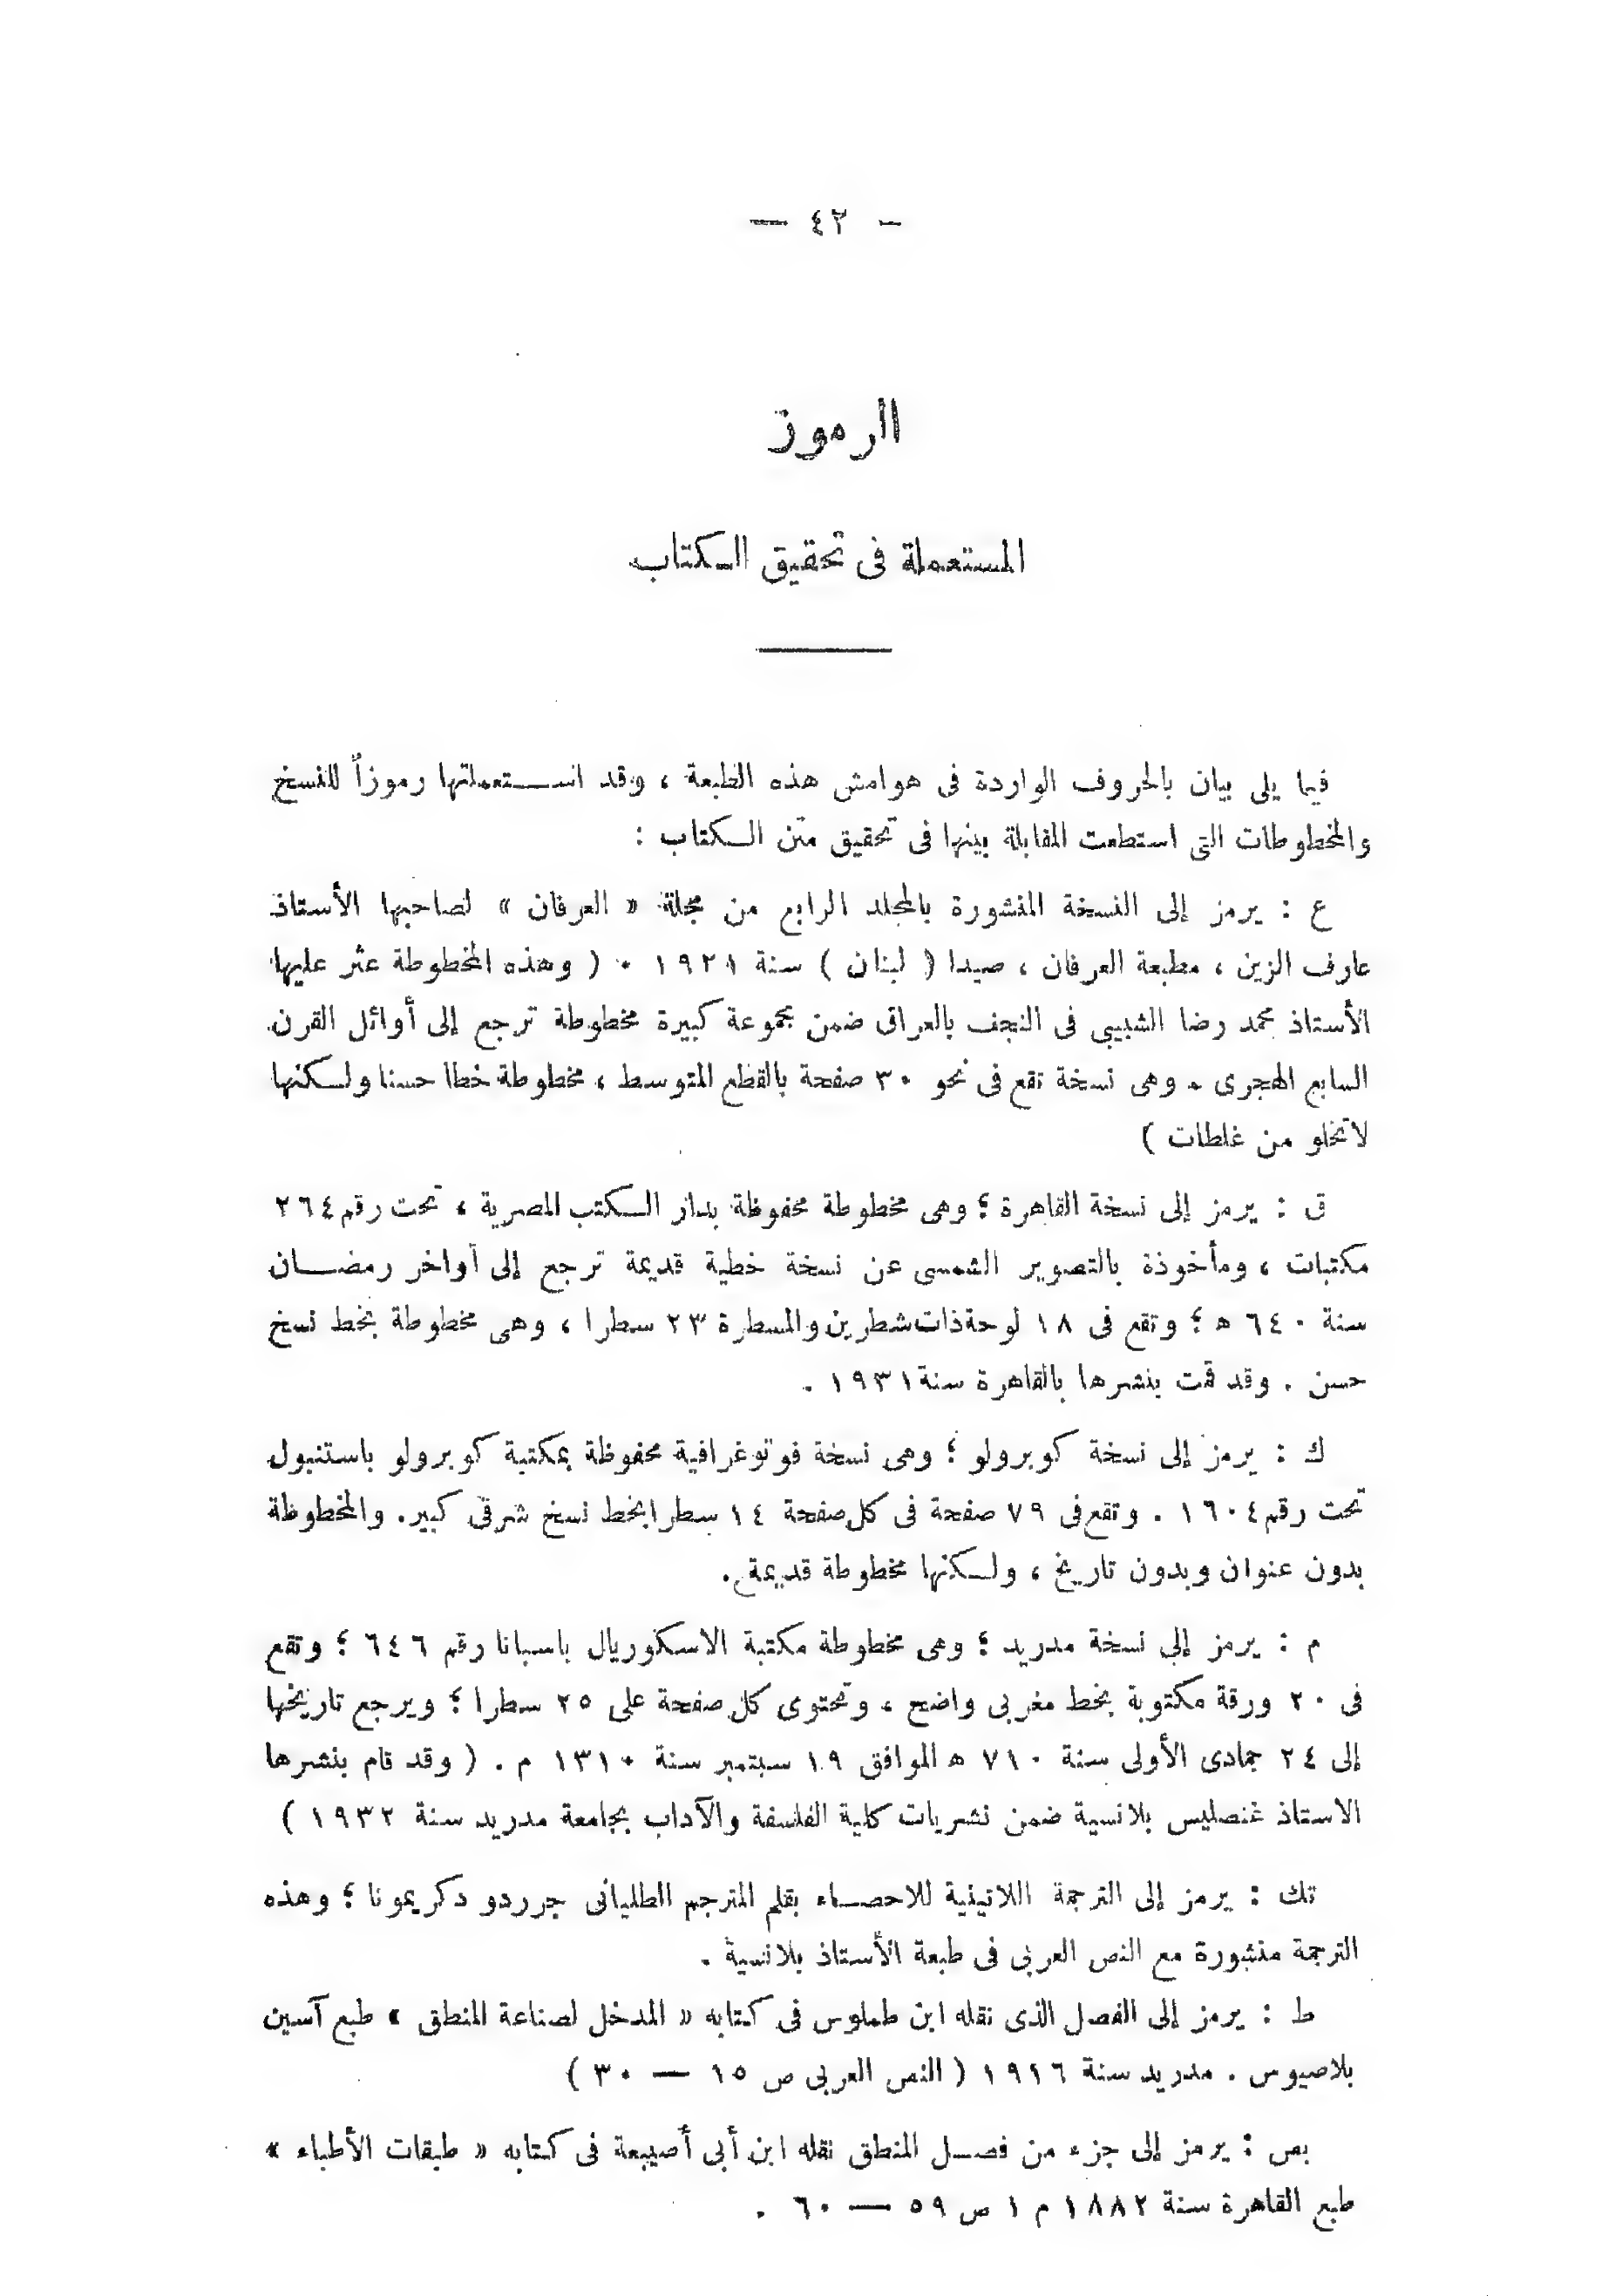 — ٤٢ —
الرموز
المستعملة فى تحقيق الكتاب
فيما يلى بيان بالحروف الواردة فى هوامش هذه الطبعة ، وقد استعملتها رموزاً للنسخ
والمخطوطات التى استطعت المقابلة بينها فى تحقيق متن الكتاب :
ع : يرمز إلى النسخة المنشورة بالمجلد الرابع من مجلة « العرفان » لصاحبها الأستاذ
عارف الزين ، مطبعة العرفان ، صيدا ( لبنان ) سنة ١٩٢١ . ( وهذه المخطوطة عثر عليها
الأستاذ محمد رضا الشبيبى فى النجف بالعراق ضمن مجموعة كبيرة مخطوطة ترجع إلى أوائل القرن
السابع الهجرى . وهى نسخة تقع فى نحو ٣٠ صفحة بالقطع المتوسط ، مخطوطة خطا حسنا ولكنها
لاتخلو من غلطات )
ق : يرمز إلى نسخة القاهرة ؛ وهى مخطوطة محفوظة بدار الكتب المصرية ، تحت رقم ٢٦٤
مكتبات ، ومأخوذة بالتصوير الشمسى عن نسخة خطية قديمة ترجع إلى أواخر رمضان
سنة ٦٤٠ ه ؛ وتقع فى ١٨ لوحة ذات شطرين والمسطرة ٢٣ سطرا ، وهى مخطوطة بخط نسخ
حسن . وقد قمت بنشرها بالقاهرة سنة ١٩٣١ .
ك : يرمز إلى نسخة كوبرولو ؛ وهى نسخة فوتوغرافية محفوظة بمكتبة كوبرولو باستنبول
تحت رقم ١٦٠٤ . وتقع فى ٧٩ صفحة فى كل صفحة ١٤ سطرا بخط نسخ شرقى كبير . والمخطوطة
بدون عنوان وبدون تاريخ ، ولكنها مخطوطة قديمة .
م : يرمز إلى نسخة مدريد ؛ وهى مخطوطة مكتبة الاسكوريال باسبانا رقم ٦٤٦ ؛ وتقع
فى ٢٠ ورقة مكتوبة بخط مغربى واضح ، وتحتوى كل صفحة على ٢٥ سطرا ؛ ويرجع تاريخها
إلى ٢٤ جمادى الأولى سنة ٧١٠ ه الموافق ١٩ سبتمبر سنة ١٣١٠ م . ( وقد قام بنشرها
الاستاذ غنصليس بلانسية ضمن نشريات كلية الفلسفة والآداب بجامعة مدريد سنة ١٩٣٢ )
تك : يرمز إلى الترجمة اللاتينية للاحصاء بقلم المترجم الطليانى جرردو دكريمونا ؛ وهذه
الترجمة منشورة مع النص العربى فى طبعة الأستاذ بلانسية .
ط : يرمز إلى الفصل الذى نقله ابن طملوس فى كتابه « المدخل لصناعة المنطق » طبع آسين
بلاصيوس . مدريد سنة ١٩١٦ ( النص العربى ص ١٥ — ٣٠ )
بص : يرمز إلى جزء من فصل المنطق نقله ابن أبى أصيبعة فى كتابه « طبقات الأطباء »
طبع القاهرة سنة ١٨٨٢ م ١ ص ٥٩ — ٦٠ .